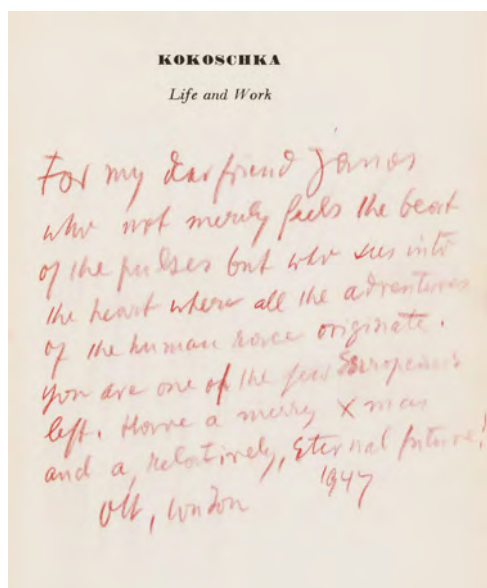 KOKOSCHKA
Life and Work
For my dear friend Janos
who not merely feels the beat
of the pulses but who sees into
the heart where all the adventures
of the human race originate.
You are one of the few Europeans
left. Have a merry Xmas
and a, relatively, Eternal future!
London 1947